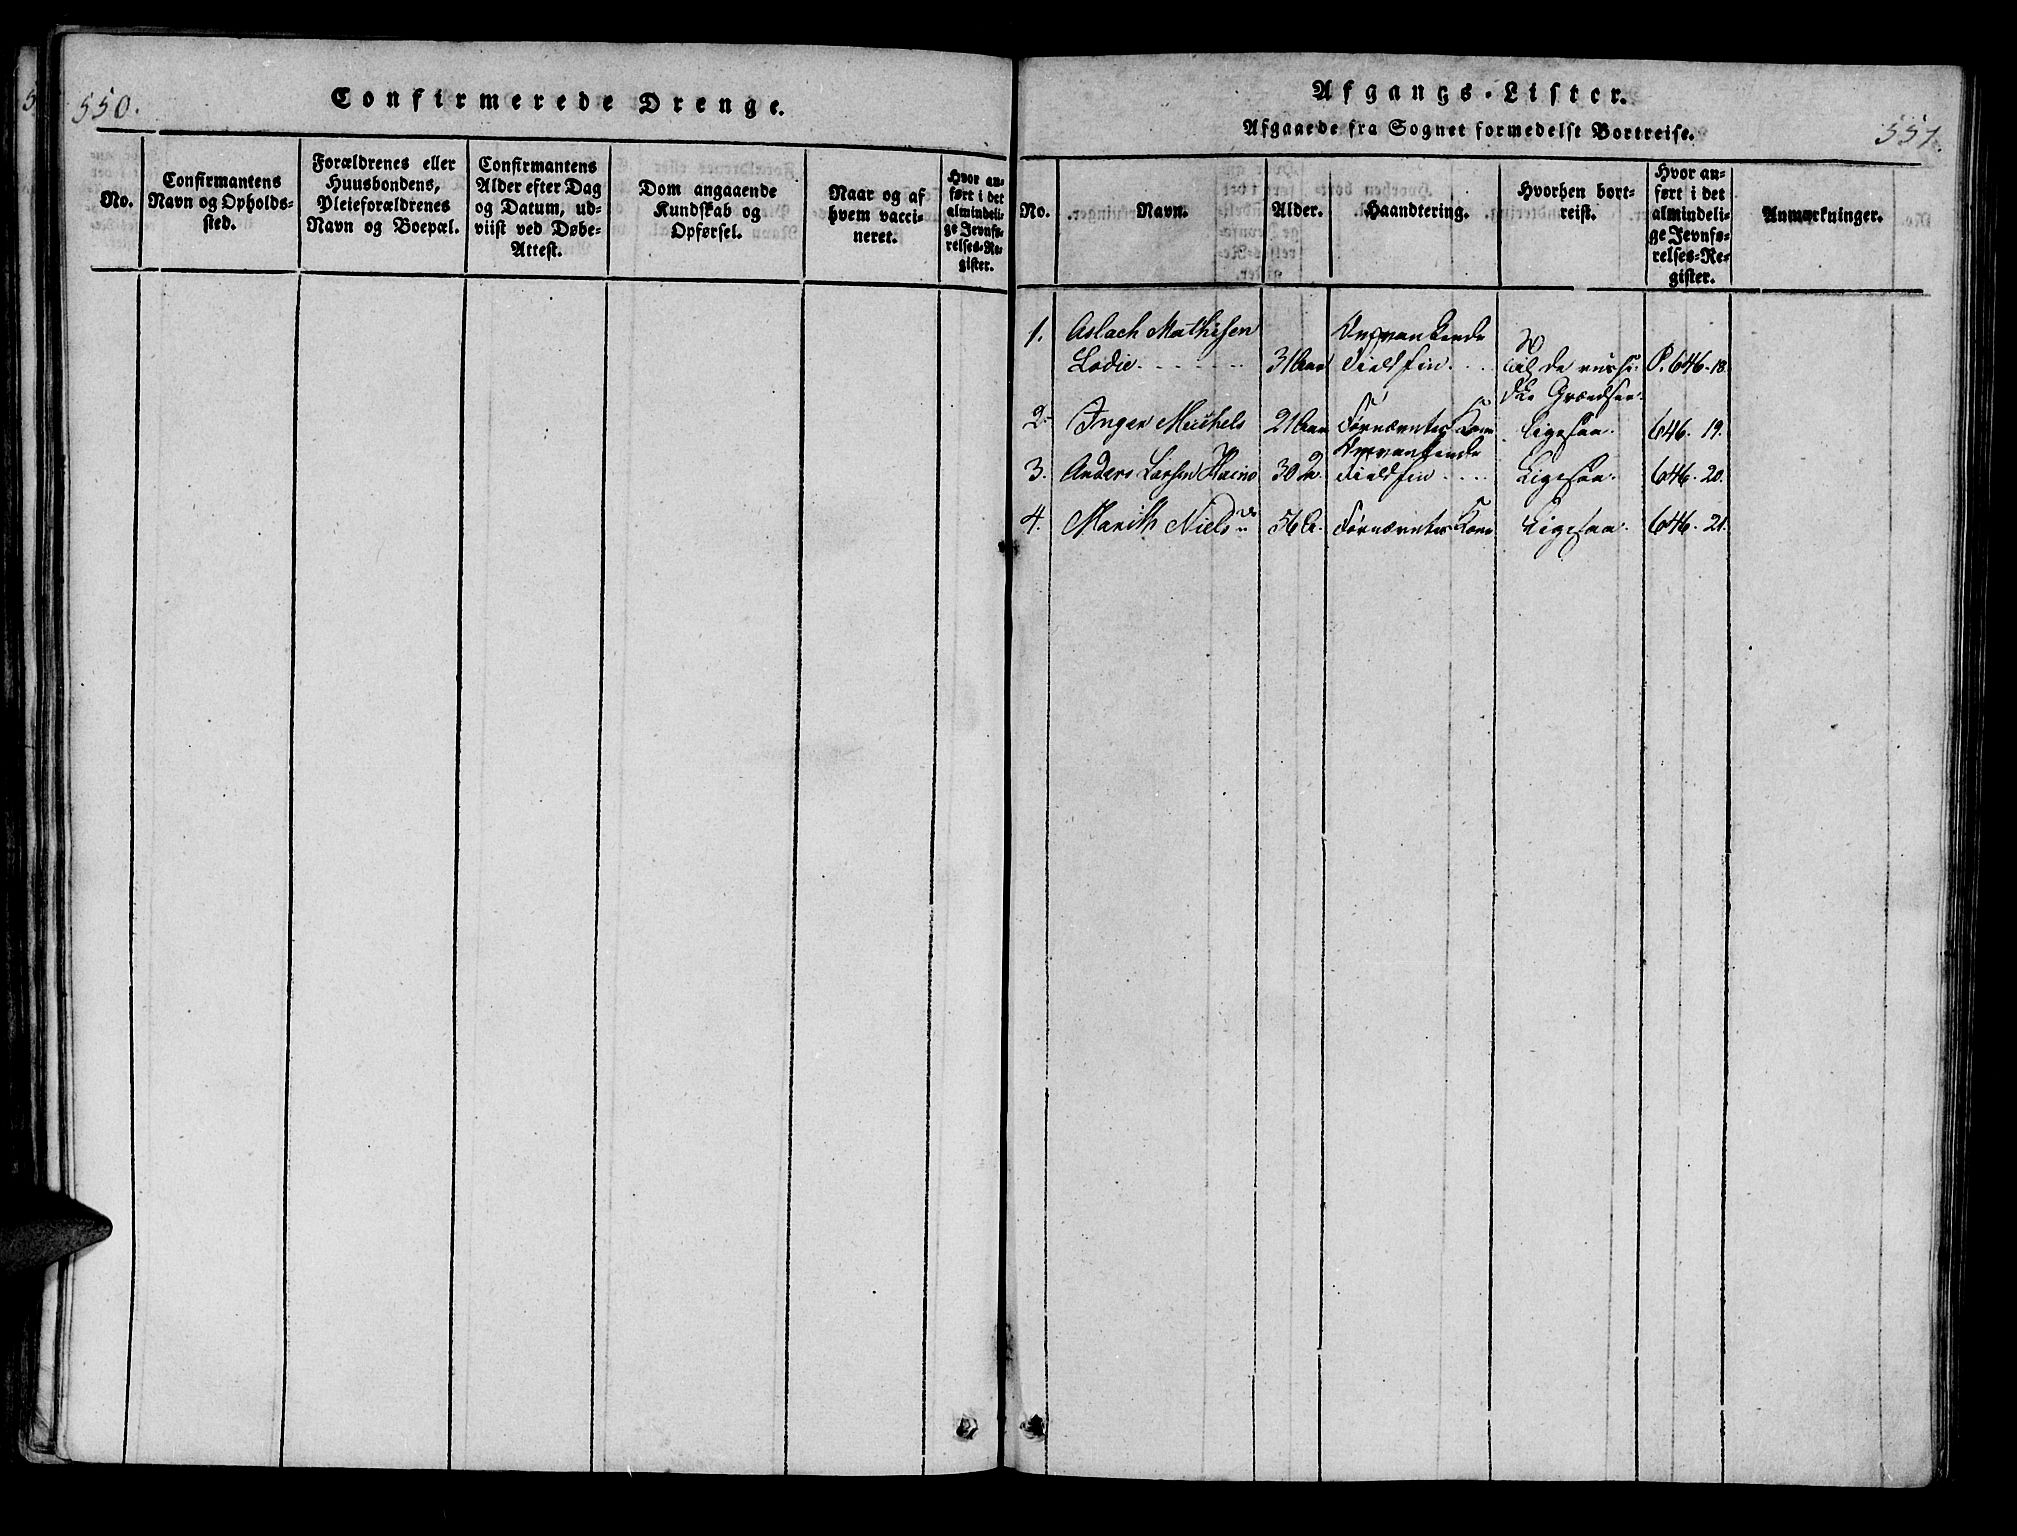 550.
Confirmerede Drenge.
No.
Confirmantens
Navn og Opholds-
sted.
Forældrenes eller
Huusbondens,
Pleieforældrenes
Navn og Boepæl.
Confirmantens
Alder efter Dag
og Datum, ud-
viist ved Døbe-
Attest.
Dom angaaende
Kundskab og
Opførsel.
Naar og af
hvem vacci-
neret.
Hvor an-
ført i det
almindeli-
ge Jevnfø-
relses-Re-
gister.
Afgangs-Lister.
Afgaaede fra Sognet formedelst Bortreise.
551.
No.
Navn.
Alder.
Haandtering.
Hvorhen bort-
reist.
Hvor an-
ført i det
almindeli-
ge Jevnfø-
relses-Re-
gister.
Anmærkninger.
1. Aslach Mathisen Omvankende
Ladie 31 Aar Fieldfin til de russi- P. 646. 18.
ske Grændser.
2. Inger Michels 21 Aar Førnævntes Kone ligesaa. 646. 19.
Omvankende
3. Anders Larsen 30 A. Fieldfin Ligesaa. 646. 20.
4. Marith Niels 56 A. Førnævntes Kone Ligesaa. 646. 21.